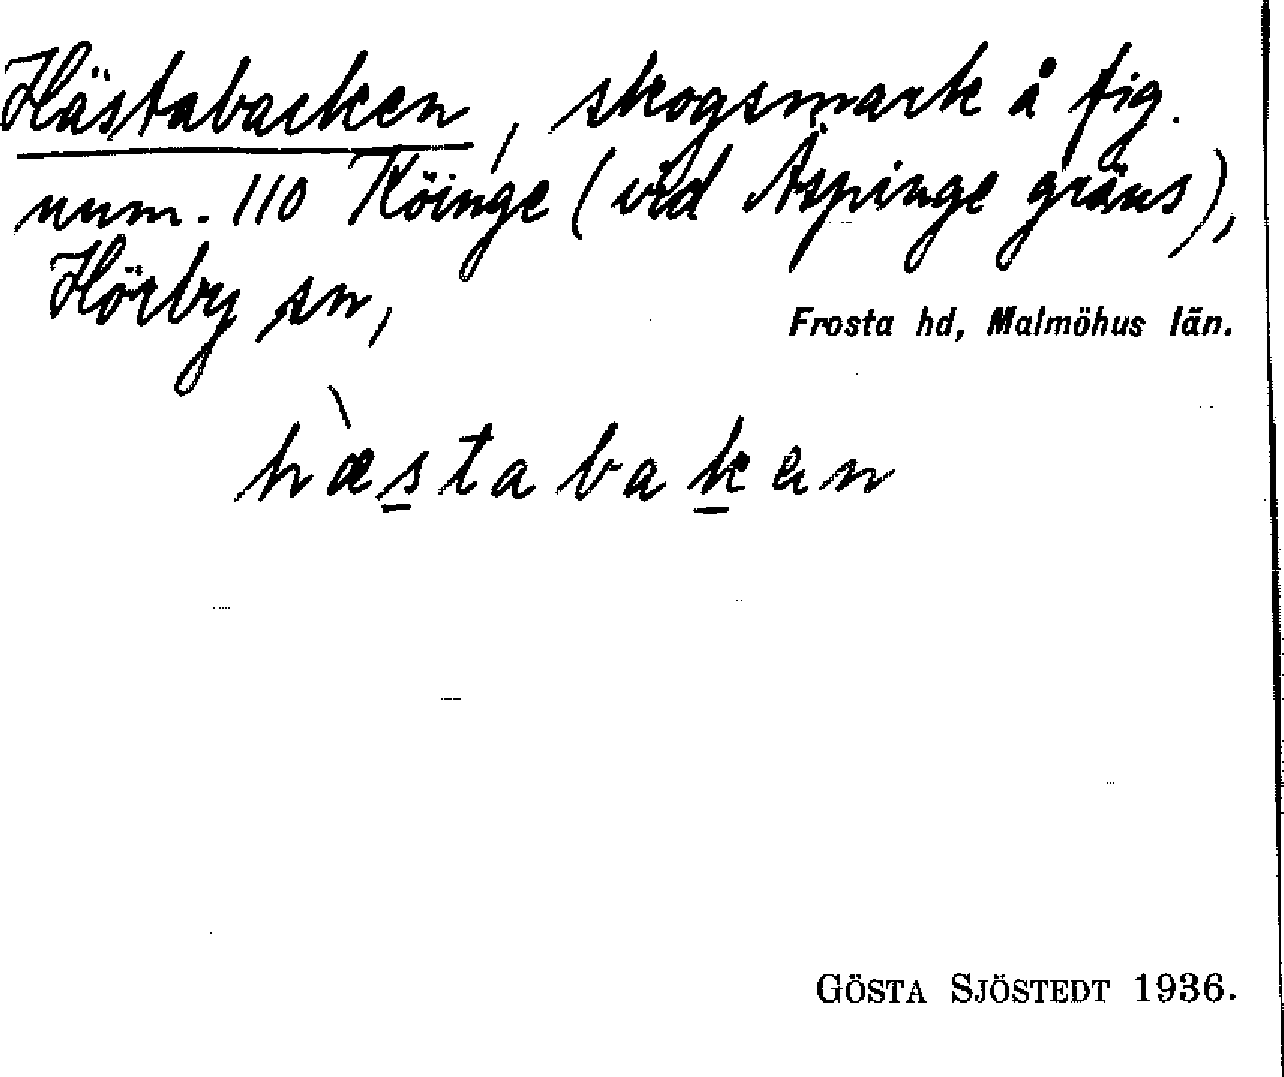 Hästabacken, skogsmark å fig.
num. 110 Köinge (vid Äspinge gräns),
Hörby sn,
Frosta hd, Malmöhus län.
hæ̀s̲tabak̲en
GÖSTA SJÖSTEDT 1936.